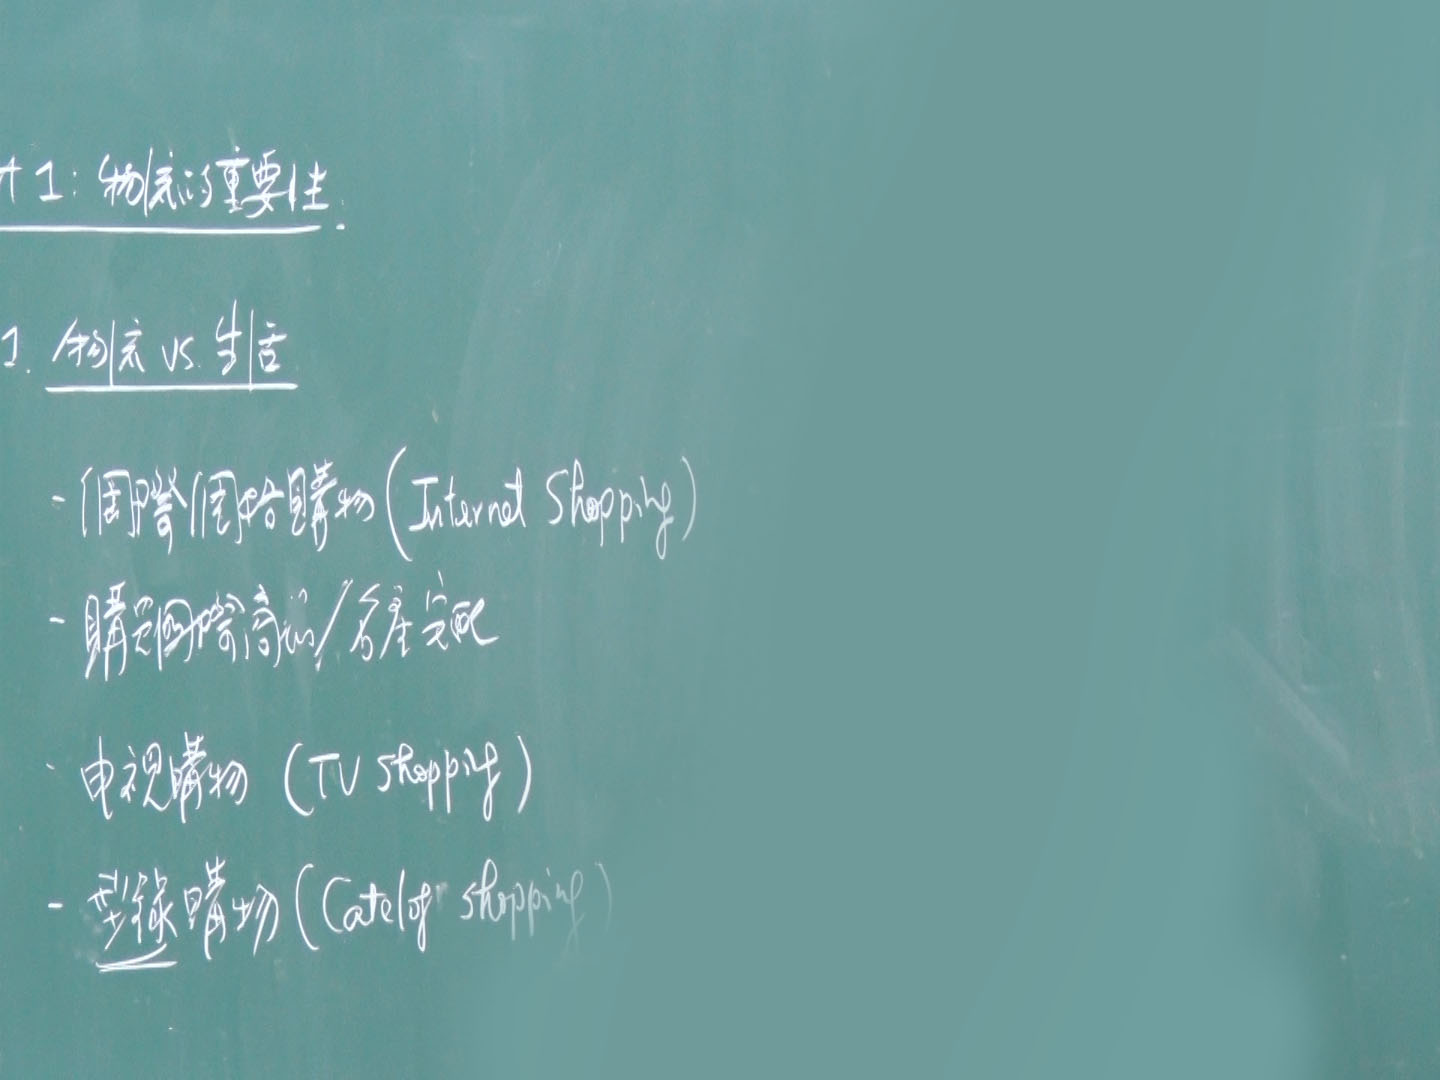 1: 物流的重要性:
1. 物流 vs. 生活
- 網際網路購物 (Internet Shopping)
- 購買國際商品/名產宅配
- 電視購物 (TV Shopping)
- 型錄購物 (Catelog shopping)